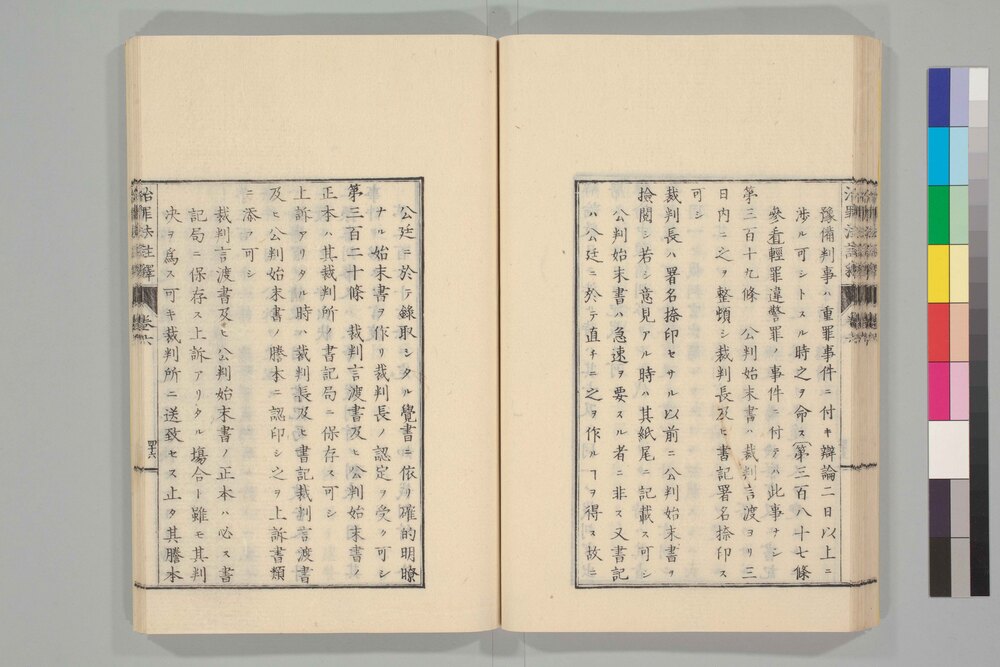 豫備判事ハ重罪事件ニ付キ辯論二日以上ニ
渉ル可シトスル時之ヲ命ス(第三百八十七條
參看輕罪違警罪ノ事件ニ付テハ此事ナシ
第三百十九條 公判始末書ハ裁判言渡ヨリ三
日内ニ之ヲ整頓シ裁判長及ヒ書記署名捺印ス
可シ
裁判長ハ署名捺印セサル以前ニ公判始末書ヲ
撿閲シ若シ意見アル時ハ其紙尾ニ記載ス可シ
公判始末書ハ急速ヲ要スル者ニ非ス又書記
ハ公廷ニ於テ直チニ之ヲ作ルヿヲ得ス故ニ
公廷ニ於テ錄取シタル覺書ニ依リ確的明瞭
ナル始末書ヲ作リ裁判長ノ認定ヲ受ク可シ
第三百二十條 裁判言渡書及ヒ公判始末書ノ
正本ハ其裁判所ノ書記局ニ保存ス可シ
上訴アリタル時ハ裁判長及ヒ書記裁判言渡書
及ヒ公判始末書ノ謄本ニ認印シ之ヲ上訴書類
ニ添フ可シ
裁判言渡書及ヒ公判始末書ノ正本ハ必ス書
記局ニ保存ス上訴アリタル塲合ト雖モ其判
决ヲ爲ス可キ裁判所ニ送致セス止タ其謄本
治罪法註釋 卷六
四十六